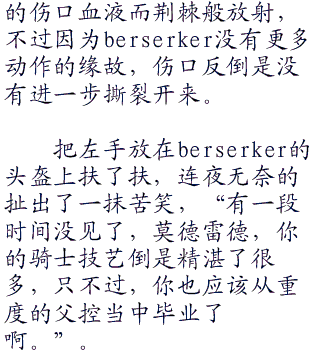 的伤口血液而荆棘般放射，
不过因为berserker没有更多
动作的缘故，伤口反倒是没
有进一步撕裂开来。
把左手放在berserker的
头盔上扶了扶，连夜无奈的
扯出了一抹苦笑，“有一段
时间没见了，莫德雷德，你
的骑士技艺倒是精湛了很
多，只不过，你也应该从重
度的父控当中毕业了
啊。”。